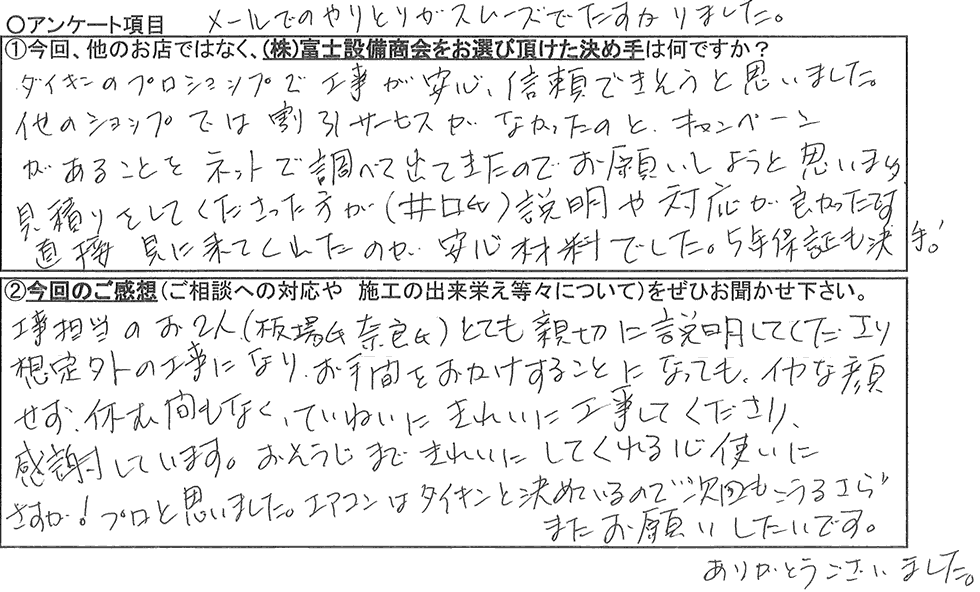 ○アンケート項目 メールでのやりとりがスムーズでたすかりました。
①今回、他のお店ではなく、(株)富士設備商会をお選び頂けた決め手は何ですか?
ダイキンのプロショップで工事が安心、信頼できそうと思いました。
他のショップでは割引サービスがなかったのと、キャンペーン
があることをネットで調べて出てきたのでお願いしようと思いまし
見積りをしてくださった方が(井口氏)説明や対応が良かったです
直接見に来てくれたのが、安心材料でした。5年保証も決め手。!
②今回のご感想(ご相談への対応や 施工の出来栄え等々について)をぜひお聞かせ下さい。
工事担当のお2人(板場氏 奈良氏)とても親切に説明してくださり
想定外の工事になり、お手間をおかけすることになっても、イヤな顔
せず、休む間もなく、ていねいにきれいに工事してくださり、
感謝しています。おそうじまできれいにしてくれる心使いに
さすが!プロと思いました。エアコンはダイキンと決めているので"次回もうるさら"
またお願いしたいです。
ありがとうございました。